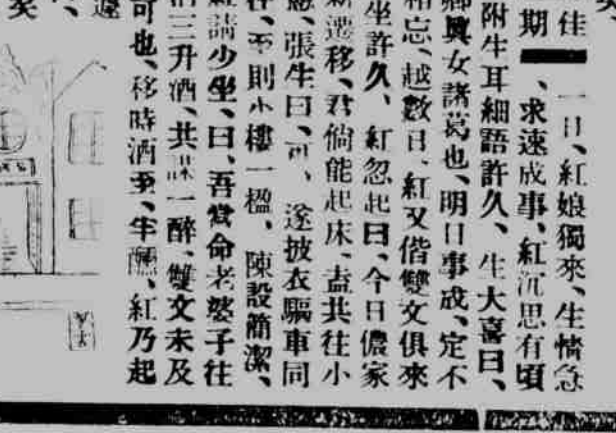 佳 一日、紅娘獨來、生情急
期 、求速成事、紅沉思有頃
附牛耳細語許久、生大喜曰、
興女諸葛也、明日事成、定不
相忘、越數日、紅又偕雙文俱來
坐許久、紅忽起曰、今日儂家
新遷移、君倘能起床、盍共往小
憩、張生曰、可、遂披衣驅車同
往、至則小樓一楹、陳設簡潔、
請少坐、曰、吾當命老婆子往
酒三升酒、共謀一醉、雙文未及
可也、移時酒至、半醺、紅乃起
矣